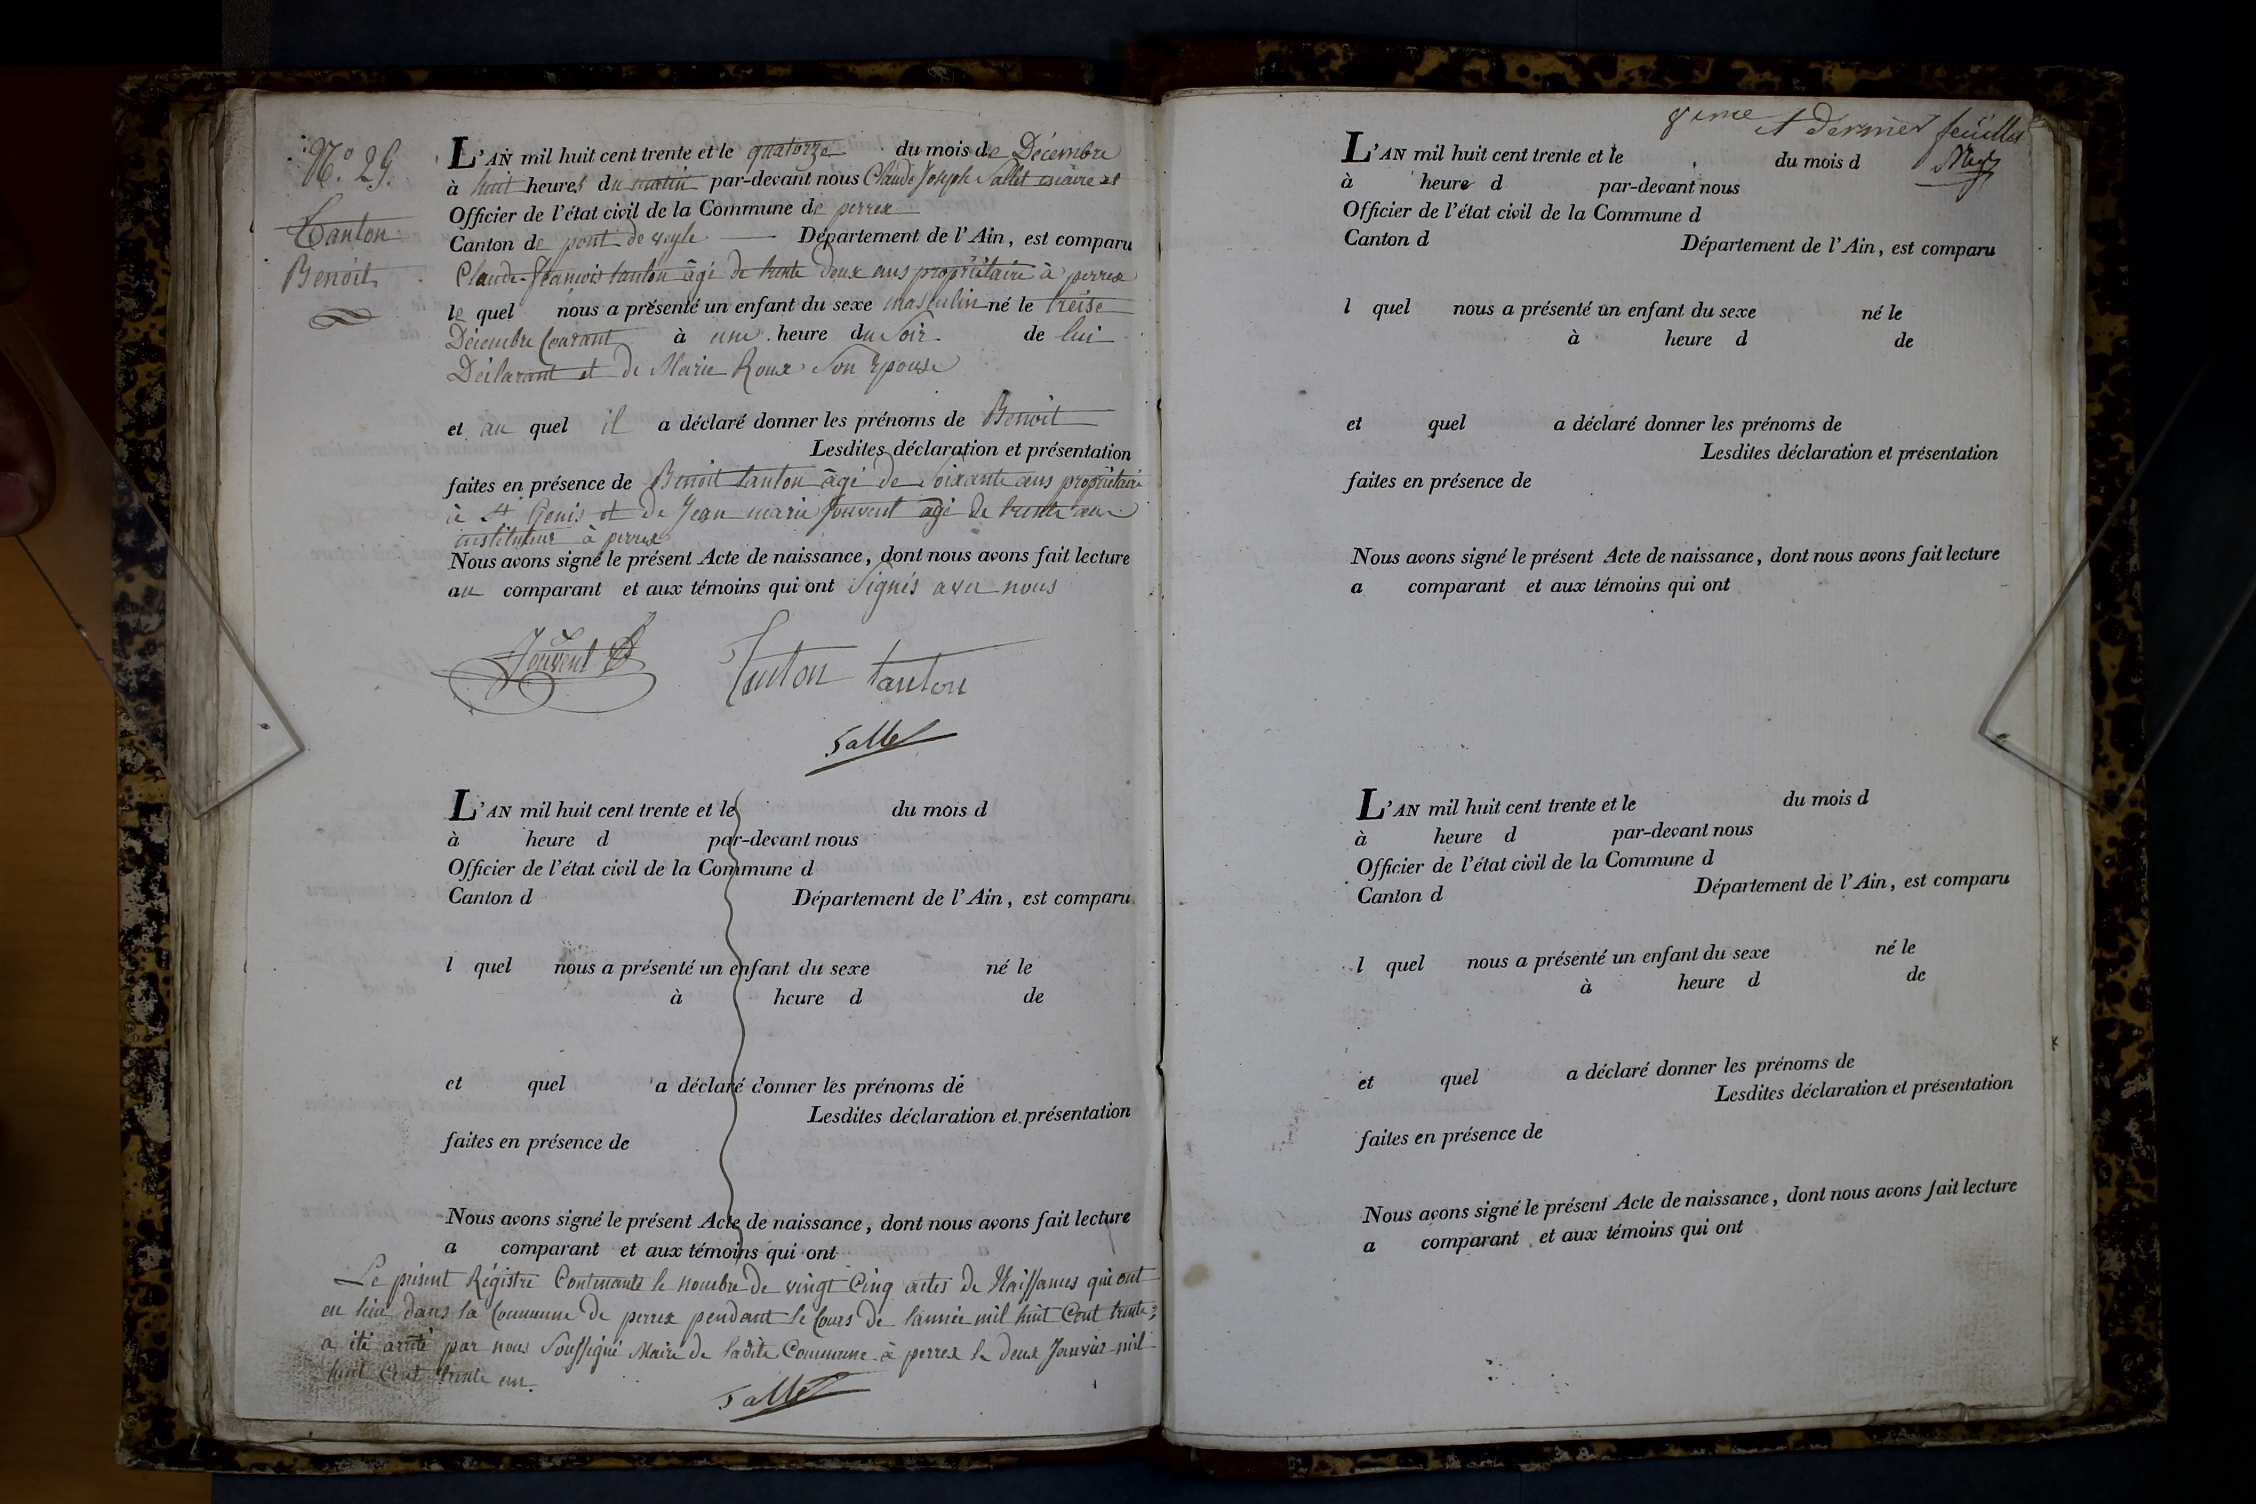 N.° 25.
Tanton
Benoit
L'AN mil huit cent trente et le quatorze du mois de Décembre
à huit heures du matin par-devant nous Claude Joseph Sallet maire et
Officier de l'état civil de la Commune de perrex
Canton de pont de veyle Département de l'Ain, est comparu
Claude-françois tanton âgé de trente deux ans propriétaire à perrex
le quel nous a présenté un enfant du sexe masculin né le treise
Décembre Courant à une heure du Soir de lui
Déclarant et de Marie Roux Son Epouse
et au quel il a déclaré donner les prénoms de Benoit
Lesdites déclaration et présentation
faites en présence de Benoit tanton âgé de Soixante ans propriétaire
à St Genis et de Jean marie Jouvent agé de trente ans
instituteur à perrex
Nous avons signé le présent Acte de naissance, dont nous avons fait lecture
au comparant et aux témoins qui ont Signés avec nous
Jouvent Tanton tanton
Sallet
L'AN mil huit cent trente et le du mois d
à heure d par-devant nous
Officier de l'état civil de la Commune d
Canton d Département de l'Ain, est comparu
l quel nous a présenté un enfant du sexe né le
à heure d de
et quel a déclaré donner les prénoms de
Lesdites déclaration et présentation
faites en présence de
Nous avons signé le présent Acte de naissance, dont nous avons fait lecture
a comparant et aux témoins qui ont
Le présent Régistre Contenants le nombre de vingt Cinq actes de Naissances qui ont
eu lieu dans la Commune de perrex pendant le Cours de lannée mil huit Cent trente
a été arrêté par nous Soussigné Maire de ladite Commune à perrex le deux Janvier mil
huit Cent trente un.
Sallet
8eme et dernier feuillet
L'AN mil huit cent trente et le du mois d
à heure d par-devant nous
Officier de l'état civil de la Commune d
Canton d Département de l'Ain, est comparu
l quel nous a présenté un enfant du sexe né le
à heure d de
et quel a déclaré donner les prénoms de
Lesdites déclaration et présentation
faites en présence de
Nous avons signé le présent Acte de naissance, dont nous avons fait lecture
a comparant et aux témoins qui ont
L'AN mil huit cent trente et le du mois d
à heure d par-devant nous
Officier de l'état civil de la Commune d
Canton d Département de l'Ain, est comparu
l quel nous a présenté un enfant du sexe né le
à heure d de
et quel a déclaré donner les prénoms de
Lesdites déclaration et présentation
faites en présence de
Nous avons signé le présent Acte de naissance, dont nous avons fait lecture
a comparant et aux témoins qui ont